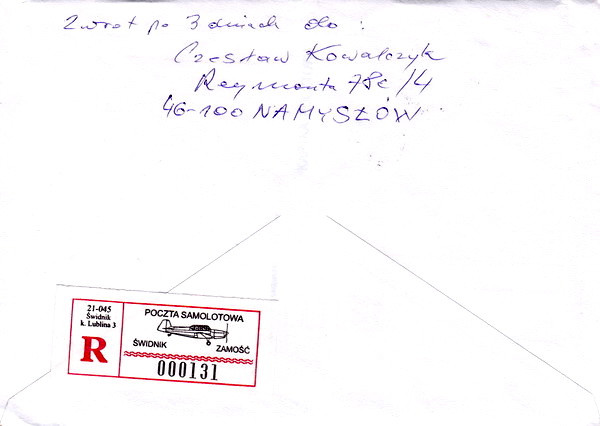 Zwrot po 3 dniach do :
Czesław Kowalczyk
Reymonta 78c/4
46-100 NAMYSŁÓW
21-045
Świdnik
k. Lublina 3
R
POCZTA SAMOLOTOWA
ŚWIDNIK
ZAMOŚĆ
000131